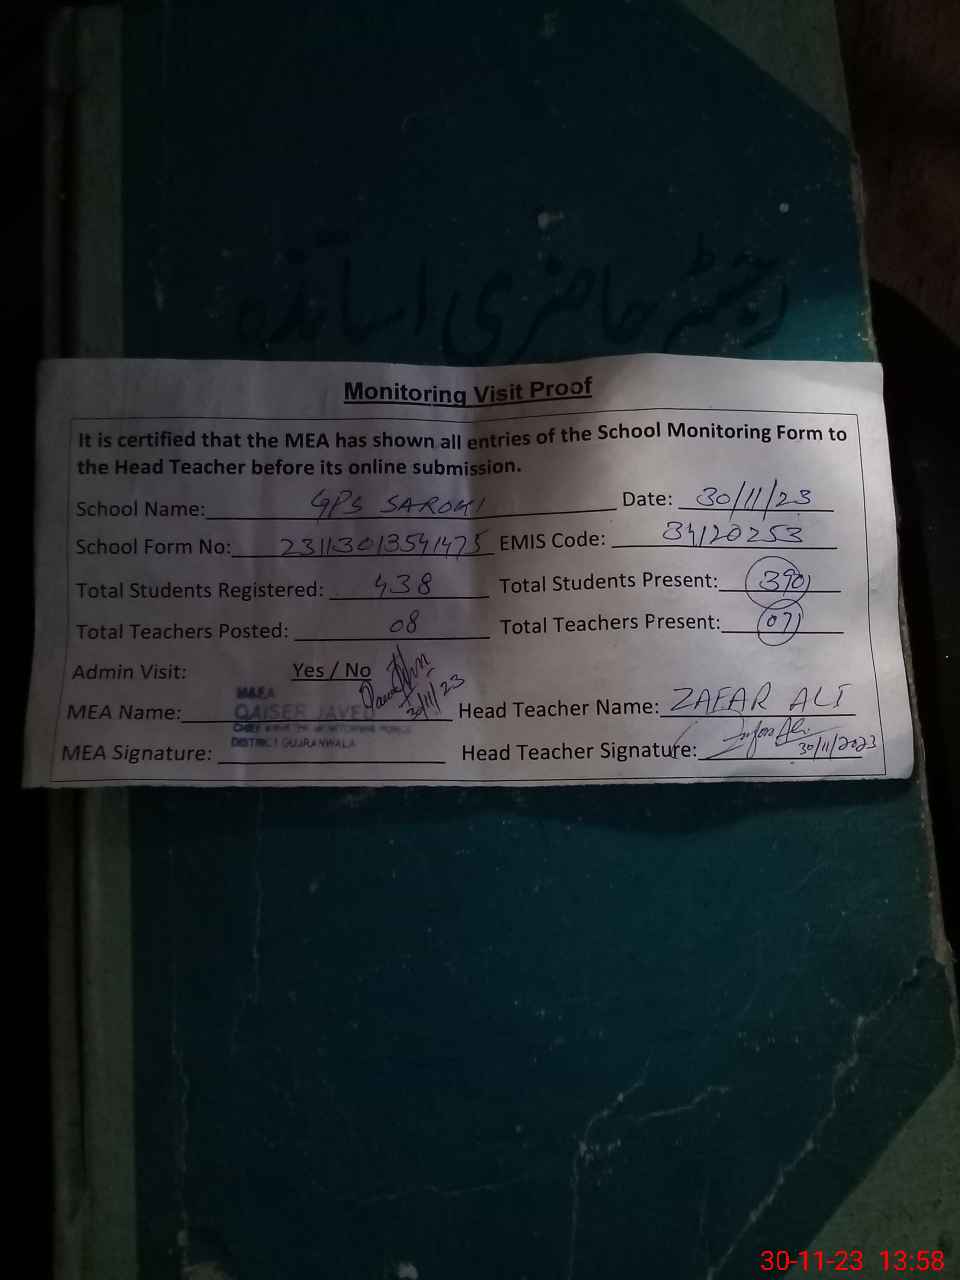 رجسٹر حاضری اساتذہ
Monitoring Visit Proof
It is certified that the MEA has shown all entries of the School Monitoring Form to
the Head Teacher before its online submission.
School Name: GPS SAROKI Date: 30/11/23
School Form No: 23113013541475 EMIS Code: 34120253
Total Students Registered: 438 Total Students Present: 390
Total Teachers Posted: 08 Total Teachers Present: 07
Admin Visit: Yes / No
30/11/23
M&EA
MEA Name: QAISER JAVED Head Teacher Name: ZAFAR ALI
CHIEF MINISTER MONITORING FORCE
DISTRICT GUJRANWALA
MEA Signature: Head Teacher Signature: Zafar Ali
30/11/2023
30-11-23 13:58